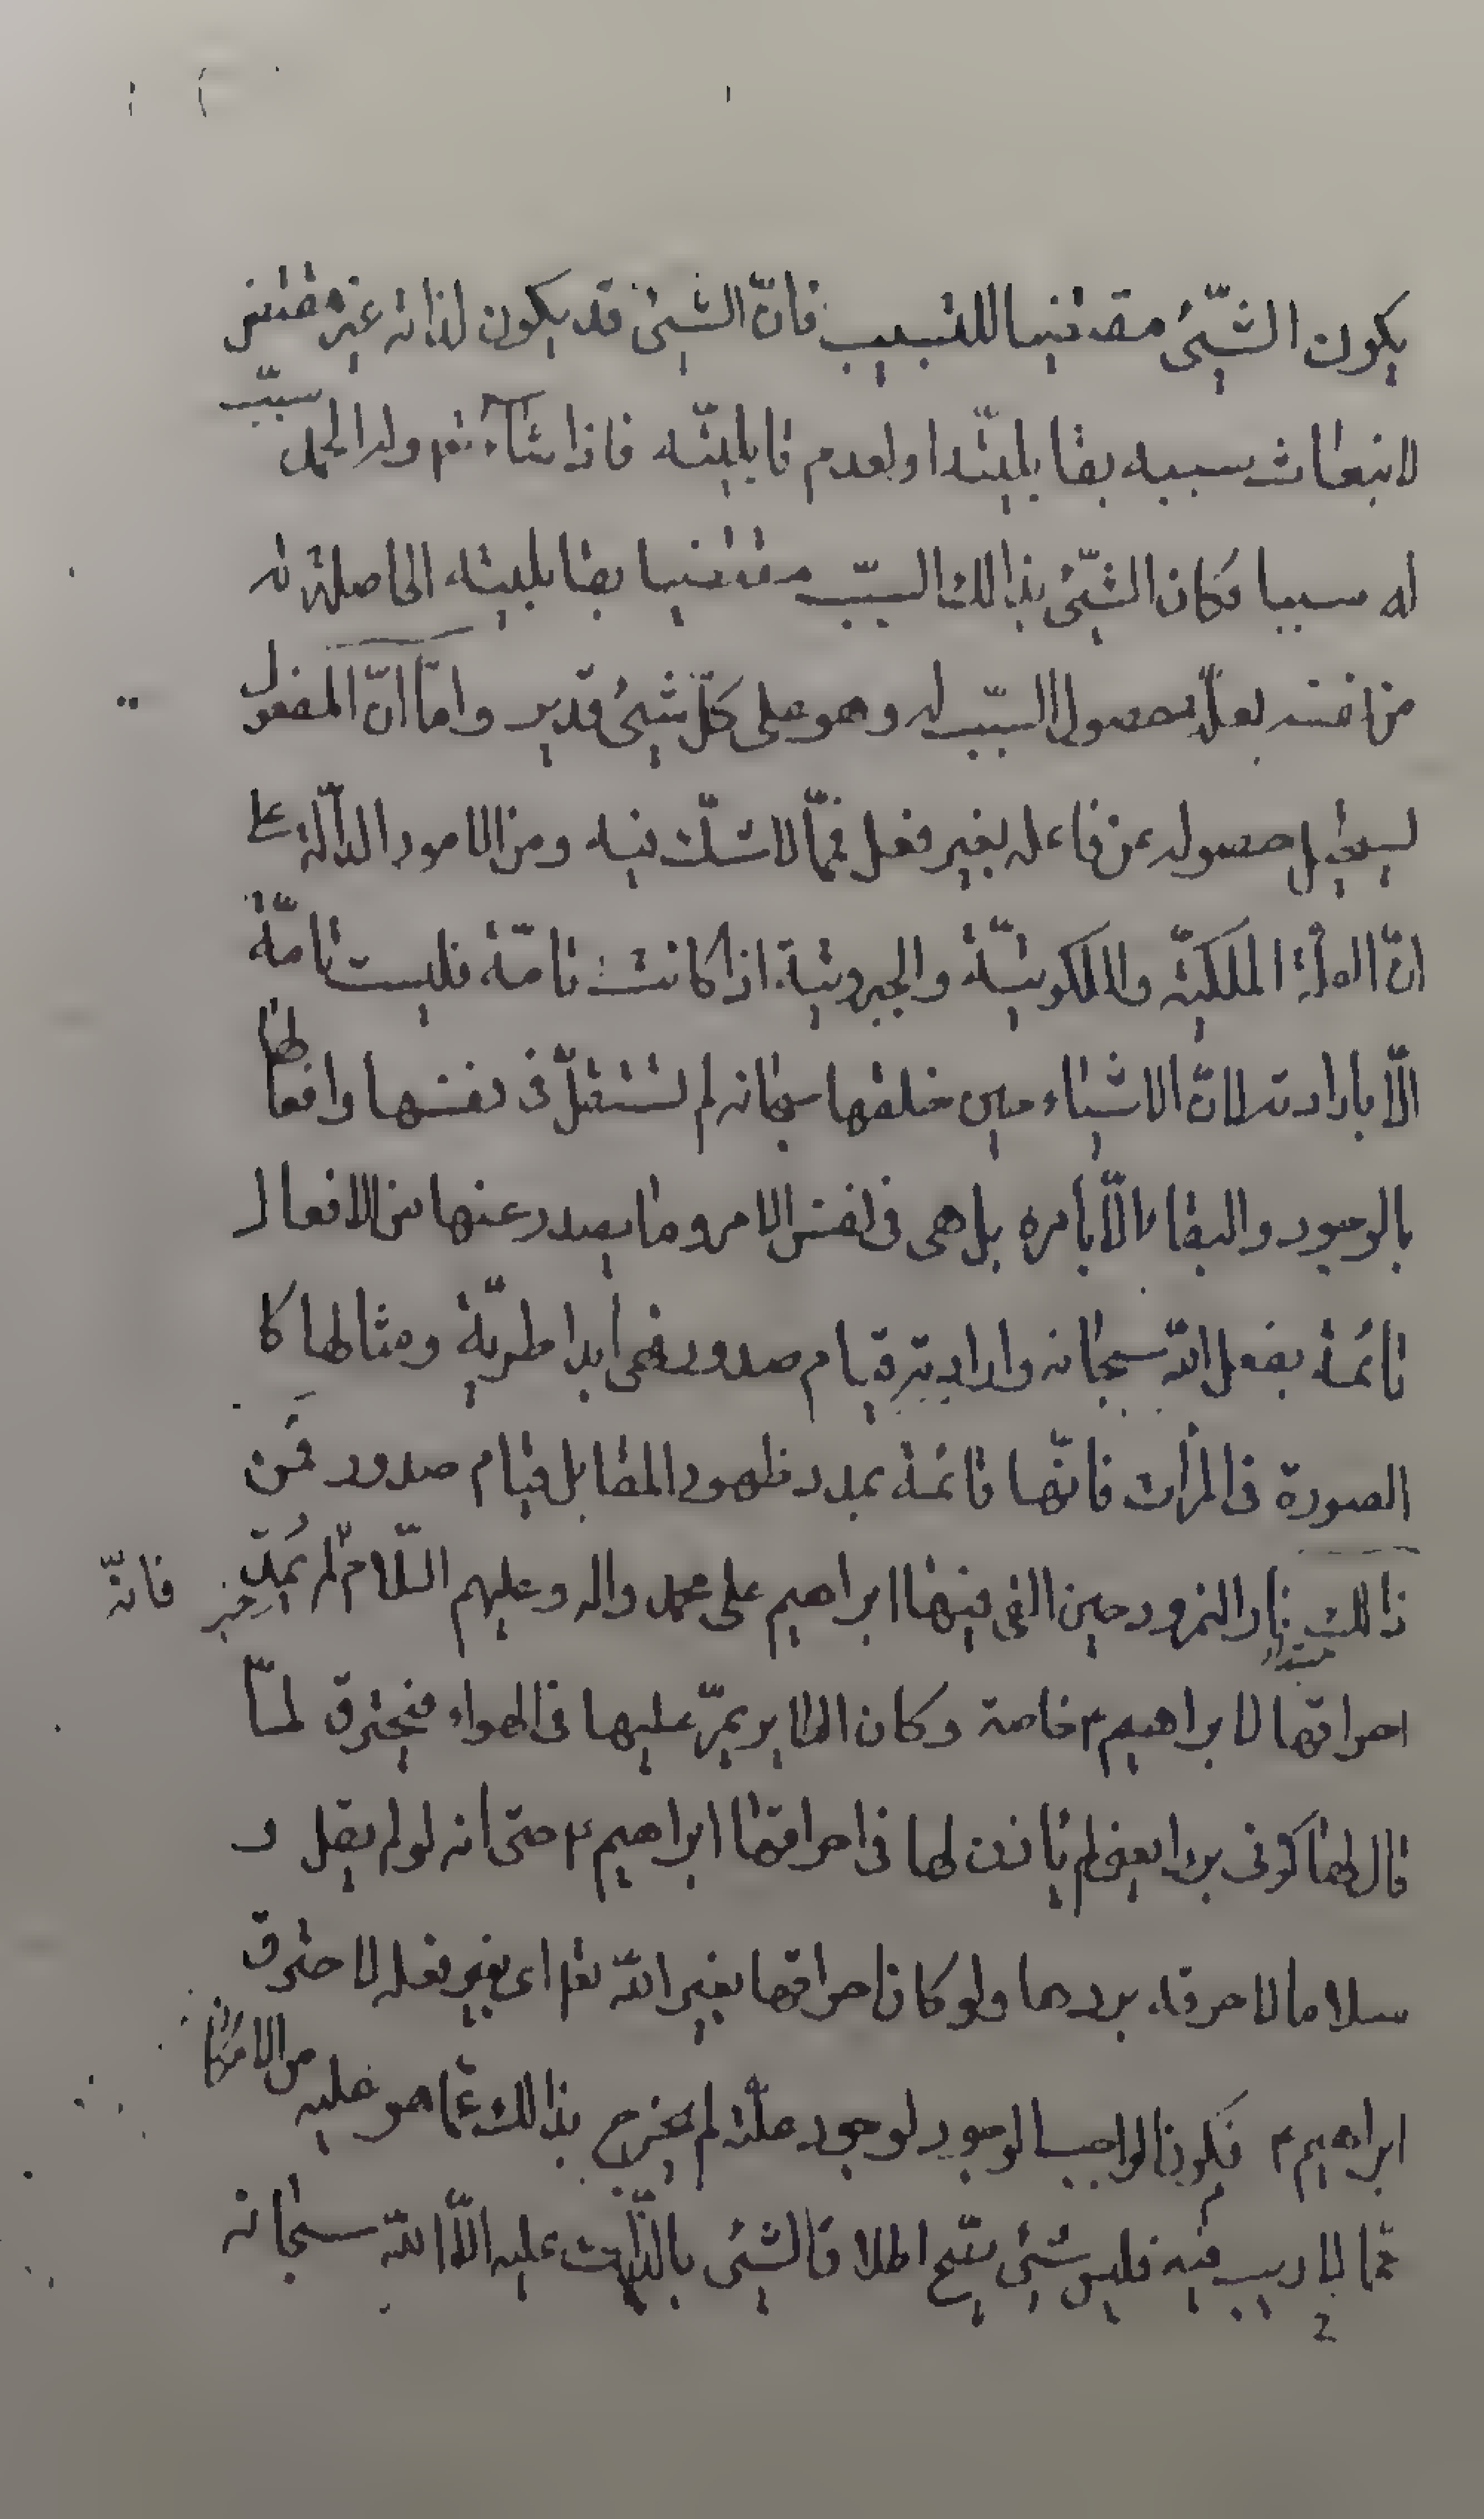 يكون الشّيئ مقتضيا للتسبيب فانّ الشيئ قد يكون لذاته غير مقتض
لانبعاث سببه بقابليّته او لعدم قابليّته فاذا شآء تعم وله الحمد سبّب
له سببا فكان الشّيئ بذالك السّبب مقتضيا بقابليته الحاصلة له
من نفسه بعلّة حصول السّبب له وهو على كلّ شيئ قدير وامّا انّ المفعول
يستحيل حصوله عن فاعله بغير فعل فممّا لا شكّ فيه ومن الامور الدالّة على
انّ العلّة الملكيّة والملكوتيّة والجبروتية اذا كانت تامّة فليست تامّة
الّا بارادته لانّ الاشياء حين خلقها سبحانه لم تستقلّ فى نفسها وافعالها
بالوجود والبقاء الّا بامره بل هى فى نفس الامر وما يصدر عنها من الافعال
قائمة بفعل اللّه سبحانه وارادته قيام صدور فهى ابدا طريّة ومثالها كا
الصورة فى المرأت فانّها قائمة بمدد ظهور المقابل قيام صدور فمن
ذالك نار النمرود حين القى فيها ابراهيم على محمد واله وعليهم السّلام لم يُمِدّ فانّه
مبتداء خبر
احراقها لابراهيم ۴ خاصة وكان الطاير يمرّ عليها فى الهواء فيحترق لمّا
قال لها كونى بردا يعنى لم يأذن لها فى احراقها ابراهيم ۴ حتى انه لو لم يقل و
سلاما لاحرقه بردها ولو كان احراقها بغير اللّه تعم اى بغير فعله لاحترق
ابراهيم ۴ فكون الواجب الوجود لوجود علّته لم يخرج بذالك عمّا هو عليه من الامكان
ممّا لا ريب فيه فليس شيئ يمتنع اطلاق الشيئ بالذّات عليه الّا اللّه سبحانه